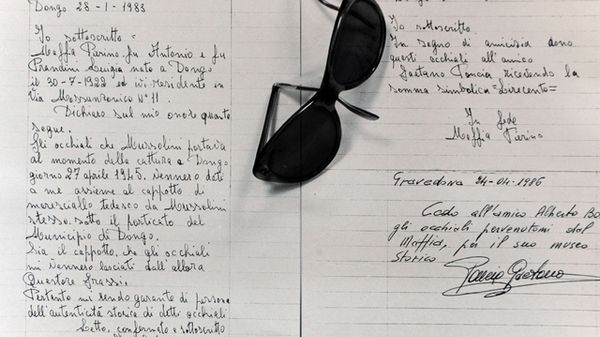 Dongo 28-1-1983
Io sottoscritto =
Maffia Pierino fu Antonio e fu
Prandini Luigia nato a Dongo
il 30-7-1922 ed ivi residente in
Via Mossanzonico N° 11.
Dichiaro sul mio onore quanto
segue:
Gli occhiali che Mussolini portava
al momento della cattura a Dongo
giorno 27 aprile 1945. Vennero dati
a me assieme al cappotto di
maresciallo tedesco da Mussolini
stesso sotto il porticato del
Municipio di Dongo.
Sia il cappotto, che gli occhiali
mi vennero lasciati dall'allora
Questore Grassi.
Pertanto mi rendo garante di persona
dell'autenticità storica di detti occhiali
Letto, confermato e sottoscritto
Io sottoscritto
In segno di amicizia dono
questi occhiali all'amico
Gaetano ricevendo la
somma simbolica =
In fede
Maffia Pierino
Gravedona 24-04-1986
Cedo all'amico Alberto Bo
gli occhiali pervenutomi dal
Maffia, per il suo museo
storico
Gaetano